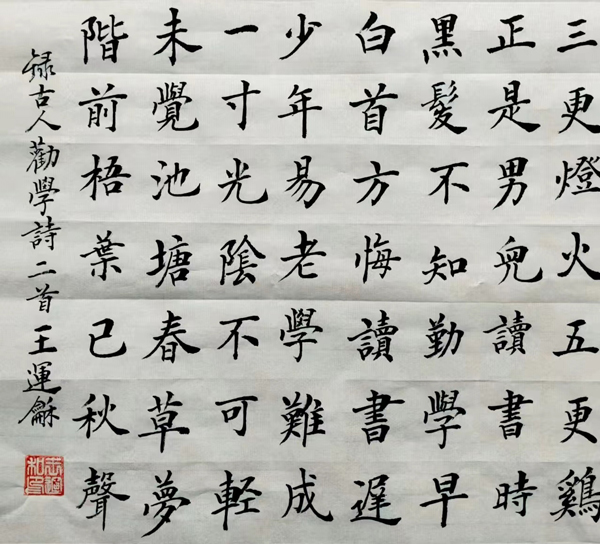 三更燈火五更鷄
正是男兒讀書時
黑髮不知勤學早
白首方悔讀書遲
少年易老學難成
一寸光陰不可輕
未覺池塘春草夢
階前梧葉已秋聲
録古人勸學詩二首王運龢